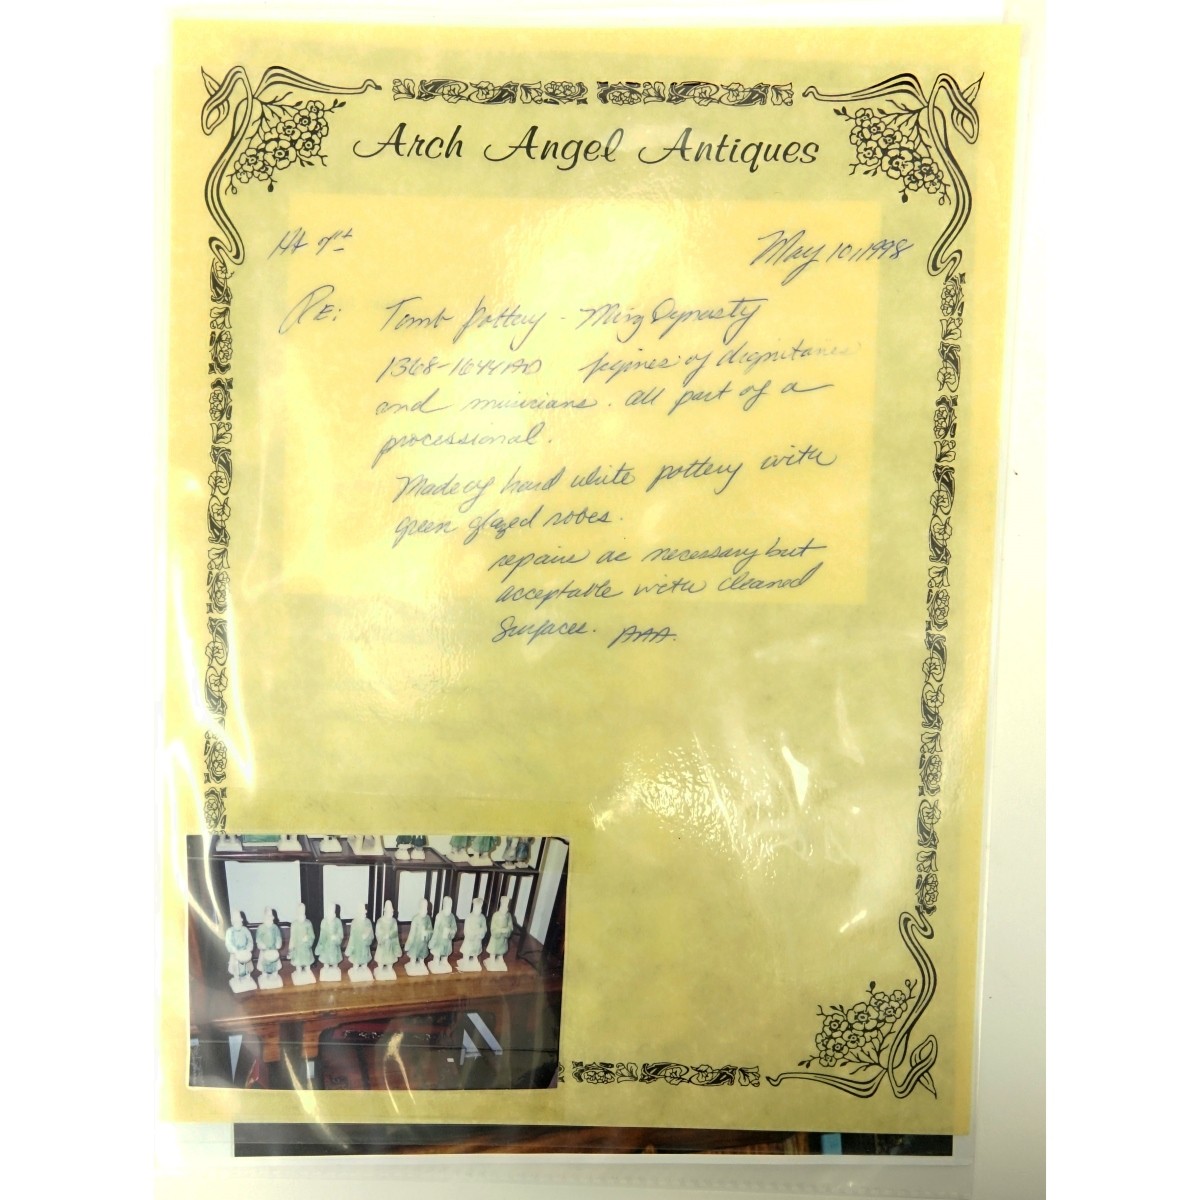 Arch Angel Antiques
May 10, 1998
RE: Tomb Pottery - Ming Dynasty
1368-1644 AD figures of dignitaries
and musicians. all part of a
processional.
Made of hard white pottery with
green glazed robes.
repairs as necessary but
acceptable with cleaned
Surfaces. AAA.